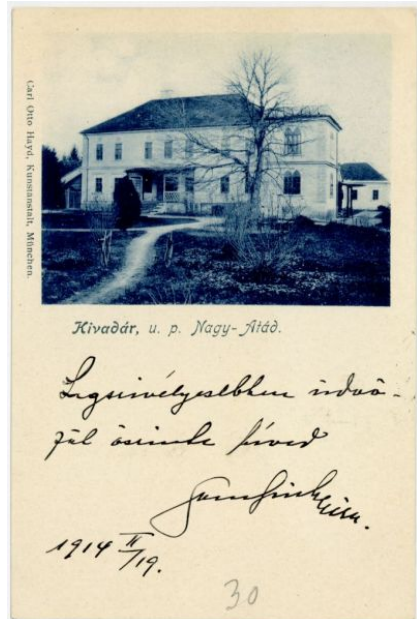 Carl Otto Hayd, Kunstanstalt, München.
Kivadár, u. p. Nagy-Atád.
Legszivélyesebben üdvö-
zöl őszinte híved
1914 II/19.
30